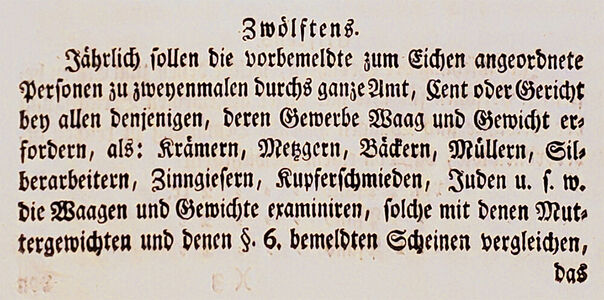 Zwölftens.
Jährlich sollen die vorbemeldte zum Eichen angeordnete
Personen zu zweyenmalen durchs ganze Amt, Cent oder Gericht
bey allen denjenigen, deren Gewerbe Waag und Gewicht er-
fordern, als: Krämern, Metzgern, Bäckern, Müllern, Sil-
berarbeitern, Zinngiesern, Kupferschmieden, Juden u. s. w.
die Waagen und Gewichte examiniren, solche mit denen Mut-
tergewichten und denen §. 6. bemeldten Scheinen vergleichen,
das